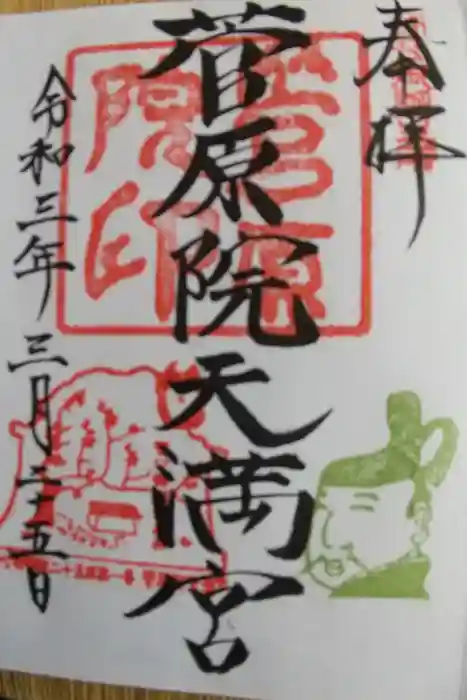 奉拝
菅原院天満宮
令和三年三月二十五日
菅原
院印